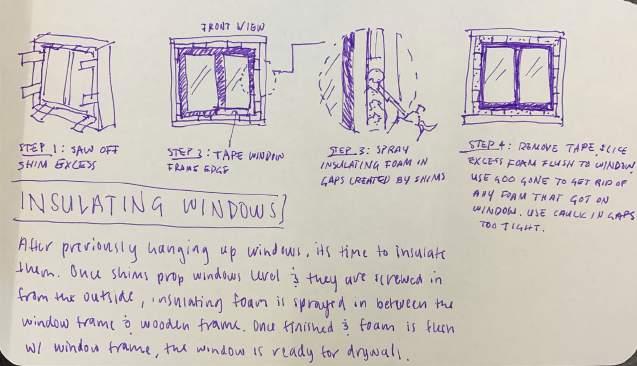 FRONT VIEW
STEP 1: SAW OFF
SHIM EXCESS
STEP 2: TAPE WINDOW
FRAME EDGE
STEP 3: SPRAY
INSULATING FOAM IN
GAPS CREATED BY SHIMS
STEP 4: REMOVE TAPE, SLICE
EXCESS FOAM FLUSH TO WINDOW.
USE GOO GONE TO GET RID OF
ANY FOAM THAT GOT ON
WINDOW. USE CAULK IN GAPS
TOO TIGHT.
INSULATING WINDOWS
After previously hanging up windows, its time to insulate
them. Once shims prop windows level & they are screwed in
from the outside, insulating foam is sprayed in between the
window frame & wooden frame. Once finished & foam is flush
w/ window frame, the window is ready for drywall.